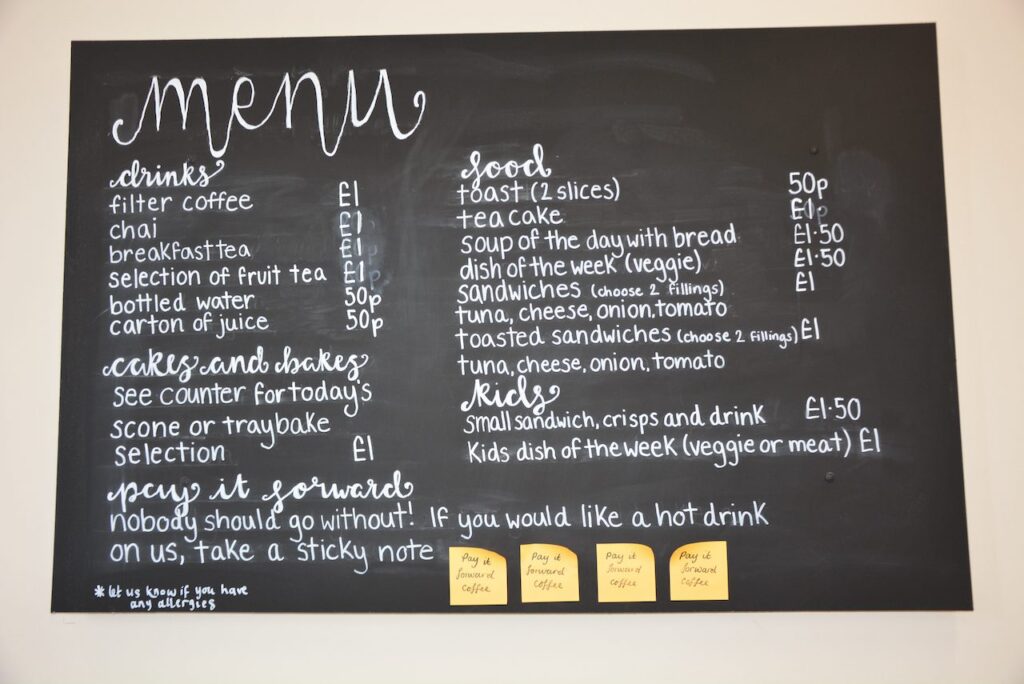 menu
drinks
filter coffee £1
chai £1
breakfast tea £1
selection of fruit tea £1
bottled water 50p
carton of juice 50p
cakes and bakes
see counter for today's
scone or traybake
selection £1
food
toast (2 slices) 50p
tea cake £1
soup of the day with bread £1.50
dish of the week (veggie) £1.50
sandwiches (choose 2 fillings) £1
tuna, cheese, onion, tomato
toasted sandwiches (choose 2 fillings) £1
tuna, cheese, onion, tomato
Kids
small sandwich, crisps and drink £1.50
Kids dish of the week (veggie or meat) £1
pay it forward
nobody should go without! If you would like a hot drink
on us, take a sticky note
Pay it
forward
coffee
Pay it
forward
coffee
Pay it
forward
coffee
Pay it
forward
coffee
* let us know if you have
any allergies